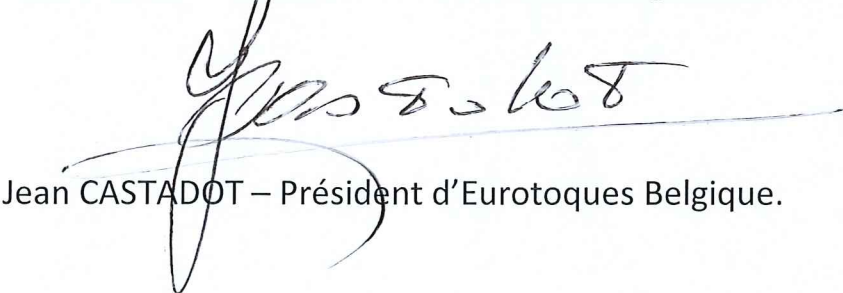 Jean CASTADOT – Président d'Eurotoques Belgique.